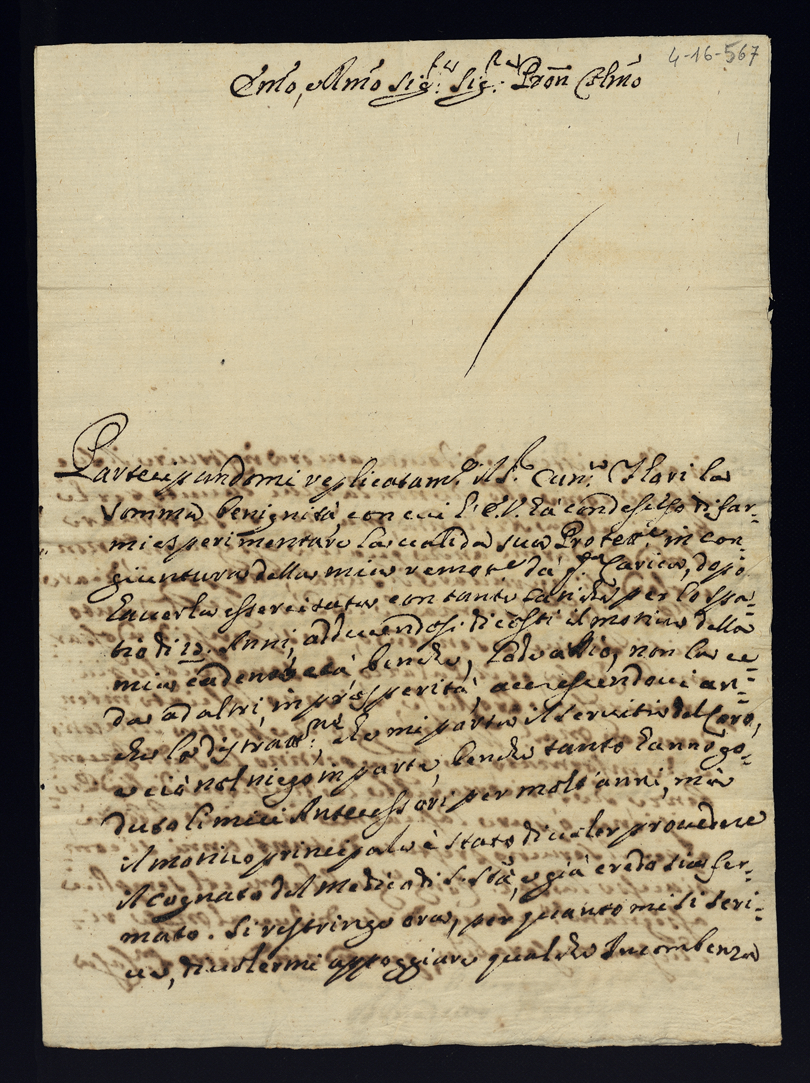 4-16-567
Em̃o, e Rm̃o Sig.r Sig.r Pron̄ Colm̃o
Partecipandomi replicatam.te il S.r Can.co Ilari la
somma benignità, con cui l'E.V. hà condesceso di far-
mi esperimentare la valida sua Protett.e in con-
giuntura della mia remot.e da q.ta Carica, dopo
haverla essercitata con tanta per lo spa-
tio di 12 Anni, adducendosi di costì il motivo della
mia cadente età benche, lode a Dio, non la ce-
da ad altri, in prosperità, accrescendovi an-
che la distratt.ne, che mi porta il servitio del Coro,
e ciò nol niego in parte, benche tanto hanno go-
duto li miei Antecessori per molt'anni, mà
il motivo principale è stato di voler provedere
il cognato del Medico di S. Stà, e già credo sia fer-
mato. Si restringe ora, per quanto mi si scri-
ve, di volermi appoggiare qualche Incombenza